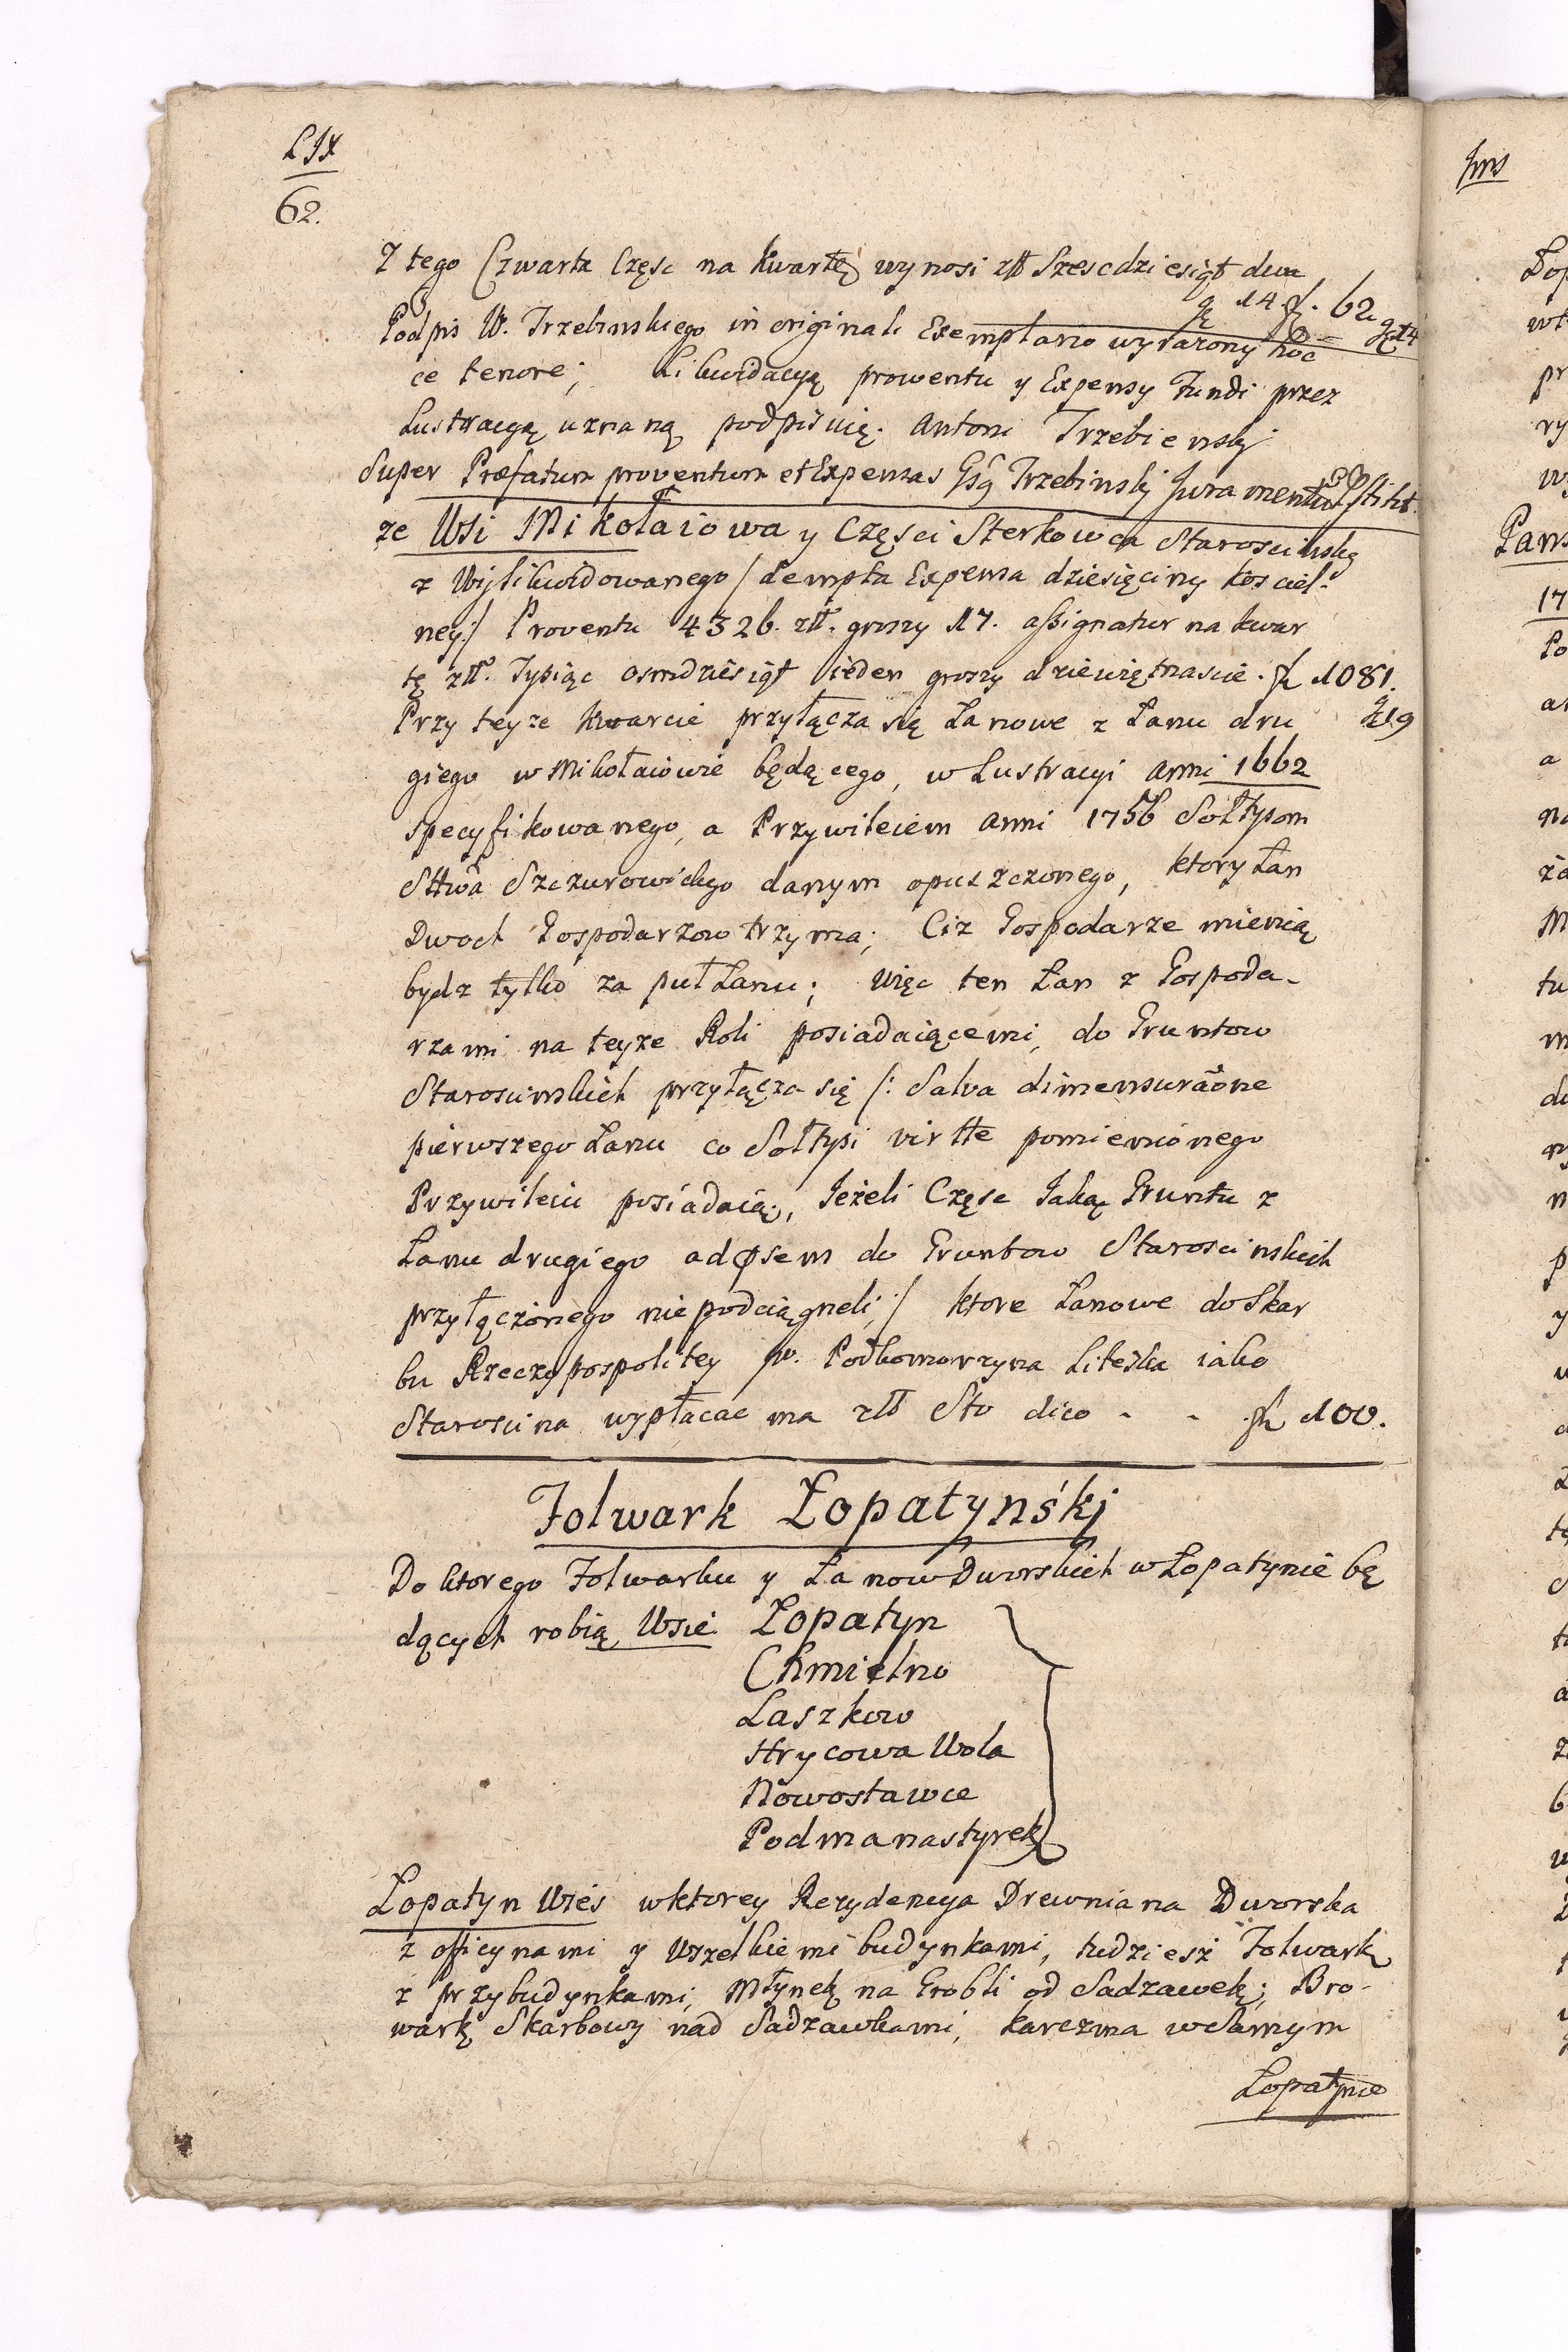 LIX
62.
Z tego Czwarta Częsc na kwartę wynosi złł Szescdziesiąt dwa
g 14 f. 62 g 14
Podpis W. Trzebinskiego in originali Exemplario wyrazony hoc
ce tenore; Likwidacyą prowentu y Expensy Fundi przez
Lustracyą uznaną podpisuię. Antoni Trzebienskj
Super Præfatum proventum et Expensas Gsg Trzebinskj Juramentū Pstitit.
ze Wsi Mikołaiowa y Częsci Sterkowca Staroscinskiey
z Wylikwidowanego / dempta Expensa dziesięciny koscieł-
ney:/ Proventu 4326. złł. groszy 17. assignatur na kwar
tę złł. Tysiąc osmdziesiąt ieden groszy dziewiętnascie. f 1081.
g 19
Przy teyze kwarcie przyłącza się Łanowe z Łanu dru
giego w Mikołaiowie będącego, w Lustracyi anni 1662
specyfikowanego, a Przywileiem anni 1756 Sołtysom
Sttwa Szczurowickiego danym opuszczonego, ktory Łan
Dwoch Gospodarzow trzyma; Ciz Gospodarze mienią
bydz tylko za puł Łanu; więc ten Łan z Gospoda-
rzami na teyze Roli posiadaiącemi, do Gruntow
Staroscinskich przyłącza się /: Salva dimensuraōne
pierwszego Łanu co Sołtysi virtte pomienionego
Przywileiu posiadaią, Jeżeli Częsc Jaką Gruntu z
Łanu drugiego ad φsens do Gruntow Staroscinskich
przyłączonego nie podciągneli,:/ ktore Łanowe do Skar
bu Rzeczypospolitey W. Podkomorzyna Liteska iako
Staroscina wypłacac ma złł Sto dico - - f 100.
Folwark Łopatyńskj
Do ktorego Folwarku y Łanow Dworskich w Łopatynie bę
dących robią Wsie Łopatyn
Chmielno
Laszkow
Hrycowa Wola
Nowostawce
Podmanastyrek
Łopatyn Wieś w ktorey Rezydencya Drewniana Dworska
z officynami y wszelkiemi budynkami, tudziesz Folwark
z przybudynkami, Młynek na Grobli od Sadzawek; Bro-
wark Skarbowy nad Sadzawkami, karczma w samym
Łopatynie